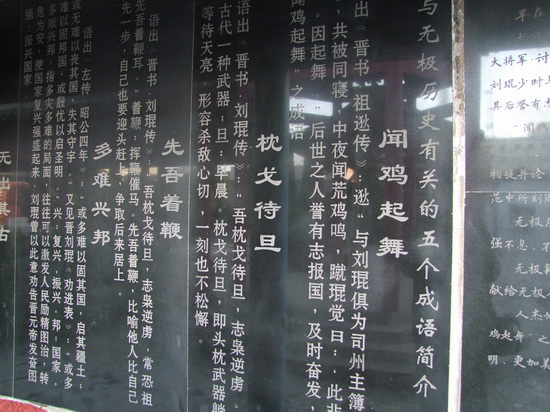 与无极历史有关的五个成语简介
闻鸡起舞
语出《晋书·祖逖传》，逖“与刘琨俱为司州主簿
共被同寝，中夜闻荒鸡鸣，蹴琨觉曰：‘此非
。因起舞”。后世之人誉有志报国，及时奋发，
闻鸡起舞”之成语
枕戈待旦
语出《晋书·刘琨传》：“吾枕戈待旦，志枭逆虏。
古代一种武器；旦：早晨。枕戈待旦，即头枕武器躺
等待天亮。形容杀敌心切，一刻也不松懈。
先吾着鞭
语出《晋书·刘琨传》：吾枕戈待旦，志枭逆虏，常恐祖
先吾着鞭耳。”着鞭：挥鞭催马。先吾着鞭，比喻他人比自己
先一步，自己也要迎头赶上，争取后来居上。
多难兴邦
语出《左传·昭公四年》：“或多难以固其国，启其疆土；
或无难以丧其国，失其守宇。”又见晋刘琨《劝进表》：“或多
难以固邦国，或殷忧以启圣明。”兴：复兴，振兴；邦：国家。
多难兴邦，指多灾多难的局面，往往可以激发人民励精图治，转
危为安，使国家复兴强盛起来。刘琨曾以此意劝告晋元帝发奋图
强，振兴国家
无出其右
早在
大将军·讨
刘琨少时与
其后誉有志
闻鸡
相提并论
范中所刻
强不息、不
无极
献给无极人
人杰地
鸡起舞”之
明、更加美